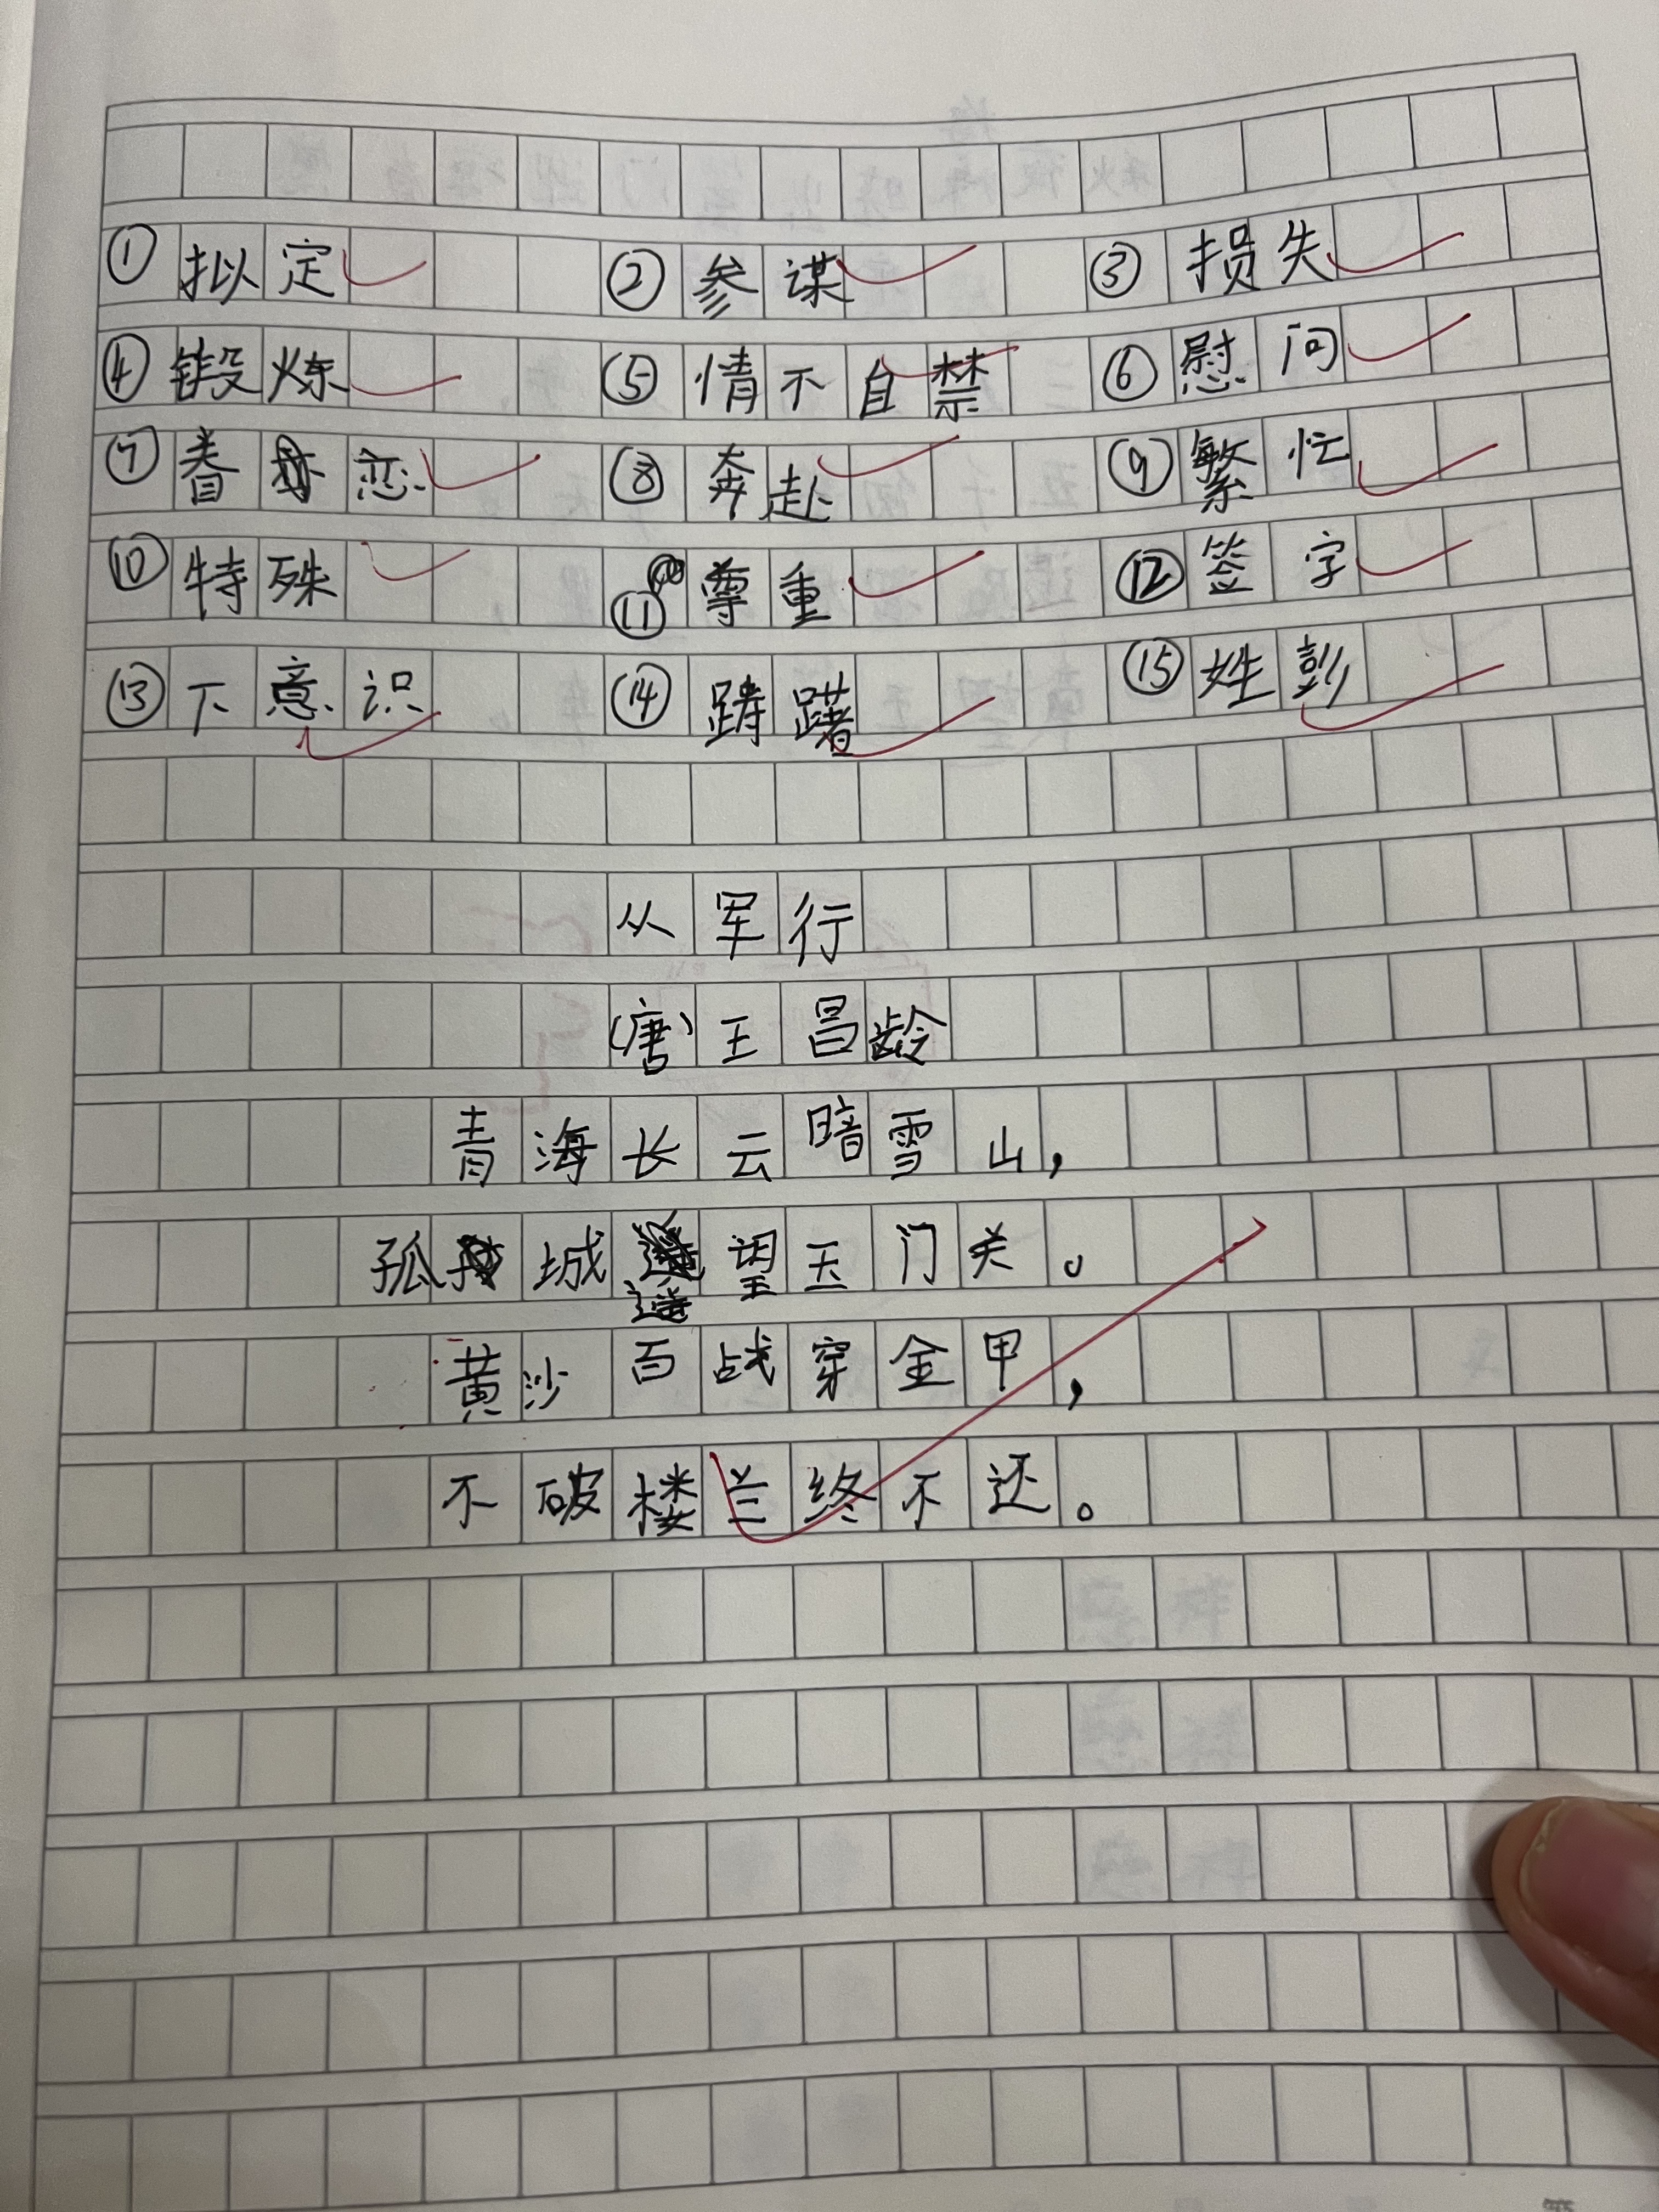 ①拟定 ②参谋 ③损失
④锻炼 ⑤情不自禁 ⑥慰问
⑦眷恋 ⑧奔赴 ⑨繁忙
⑩特殊 ⑪尊重 ⑫签字
⑬下意识 ⑭踌躇 ⑮姓彭
从军行
(唐)王昌龄
青海长云暗雪山，
孤城遥望玉门关。
黄沙百战穿金甲，
不破楼兰终不还。